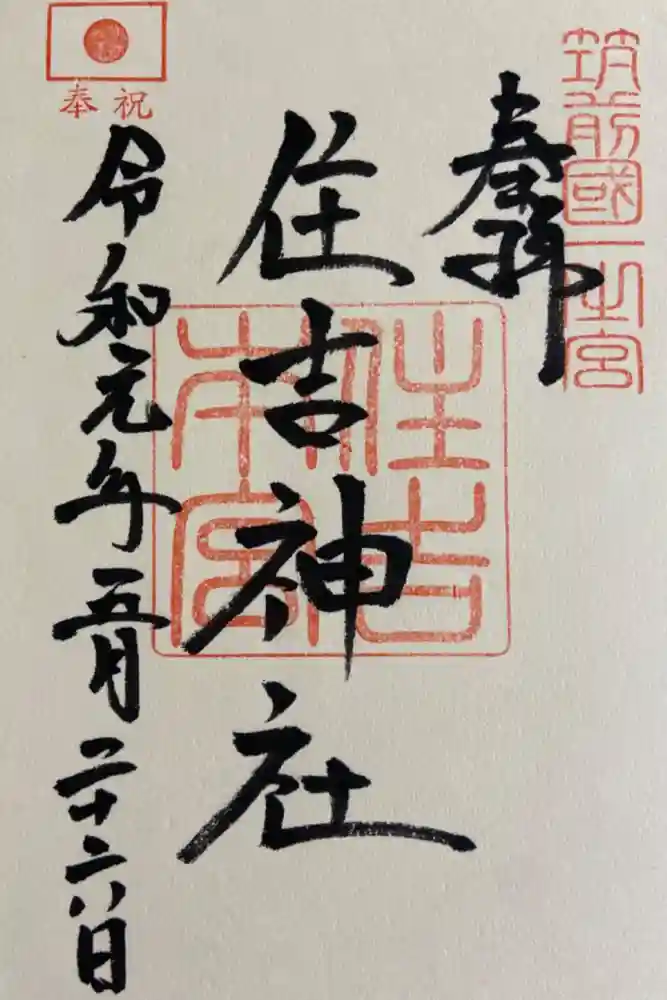 筑前國一之宮
奉拝
住吉神社
住吉
本宮
奉祝
令和元年五月二十六日